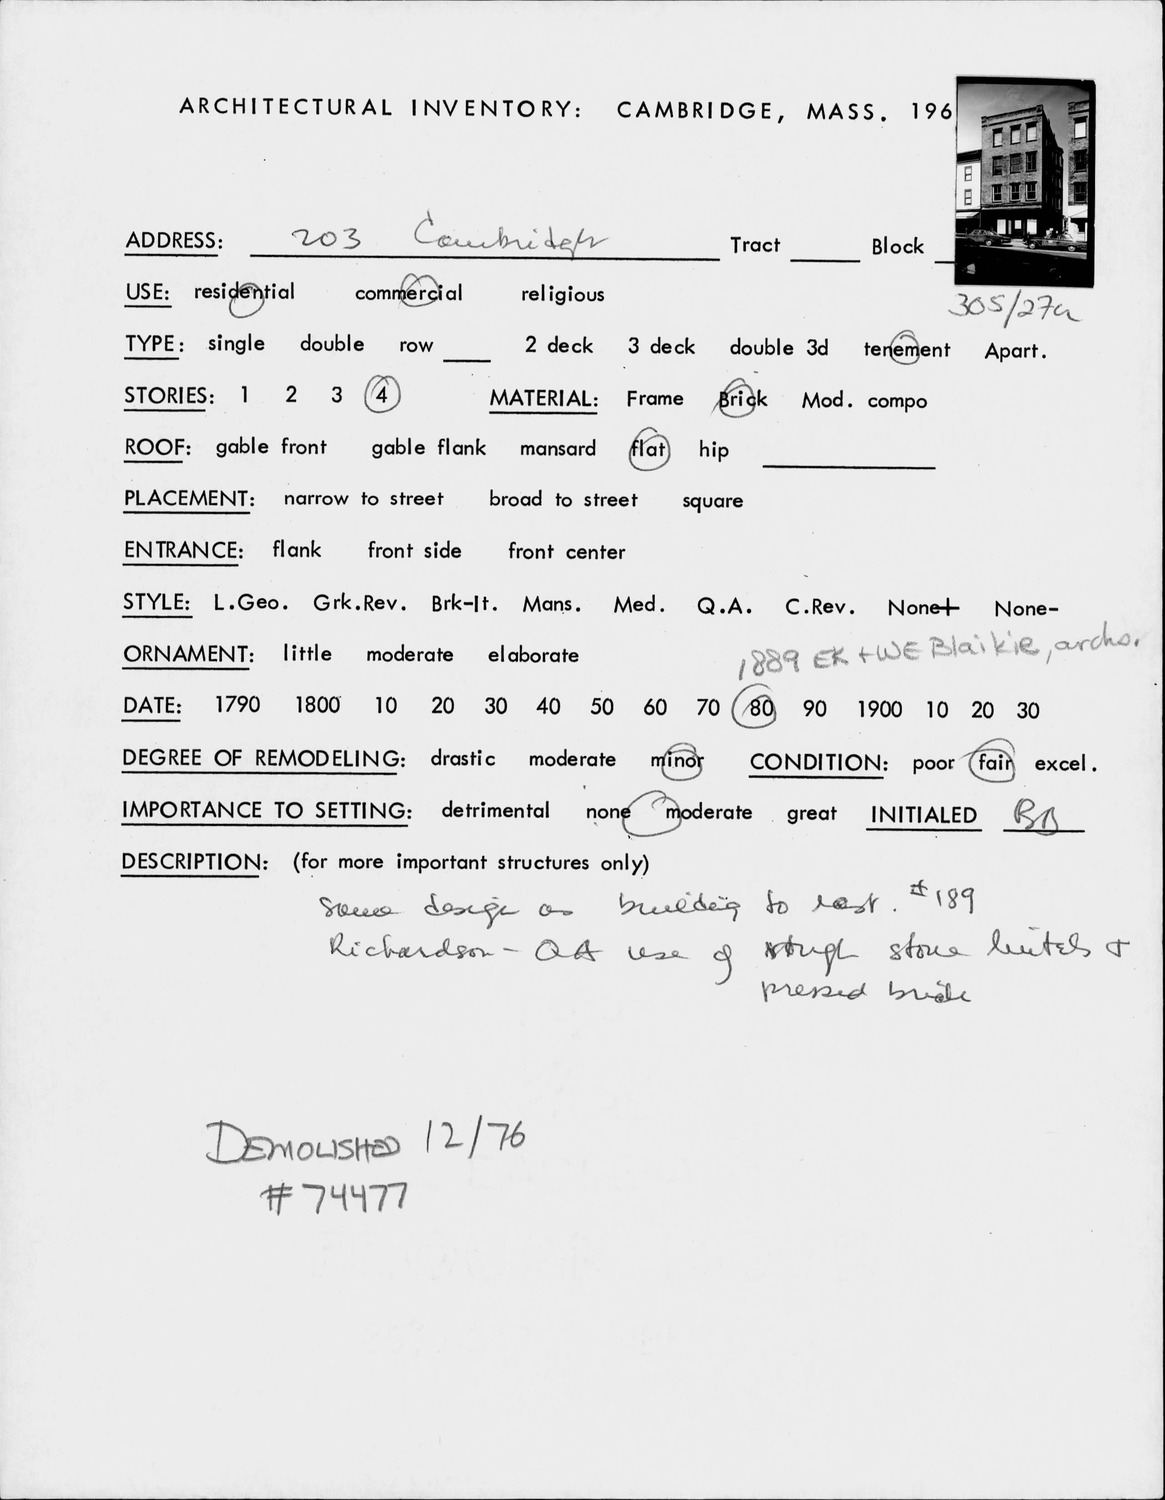 ARCHITECTURAL INVENTORY: CAMBRIDGE, MASS. 196
ADDRESS: 203 Cambridge Tract Block
305/27a
USE: residential commercial religious
TYPE: single double row 2 deck 3 deck double 3d tenement Apart.
STORIES: 1 2 3 4 MATERIAL: Frame Brick Mod. compo
ROOF: gable front gable flank mansard flat hip
PLACEMENT: narrow to street broad to street square
ENTRANCE: flank front side front center
STYLE: L.Geo. Grk.Rev. Brk-It. Mans. Med. Q.A. C.Rev. None+ None-
ORNAMENT: little moderate elaborate
1889 EK + WE Blaikie, archs.
DATE: 1790 1800 10 20 30 40 50 60 70 80 90 1900 10 20 30
DEGREE OF REMODELING: drastic moderate minor CONDITION: poor fair excel.
IMPORTANCE TO SETTING: detrimental none moderate great INITIALED BB
DESCRIPTION: (for more important structures only)
Same design as building to east. #189
Richardson - QA use of rough stone lintels +
pressed brick
DEMOLISHED 12/76
# 74477